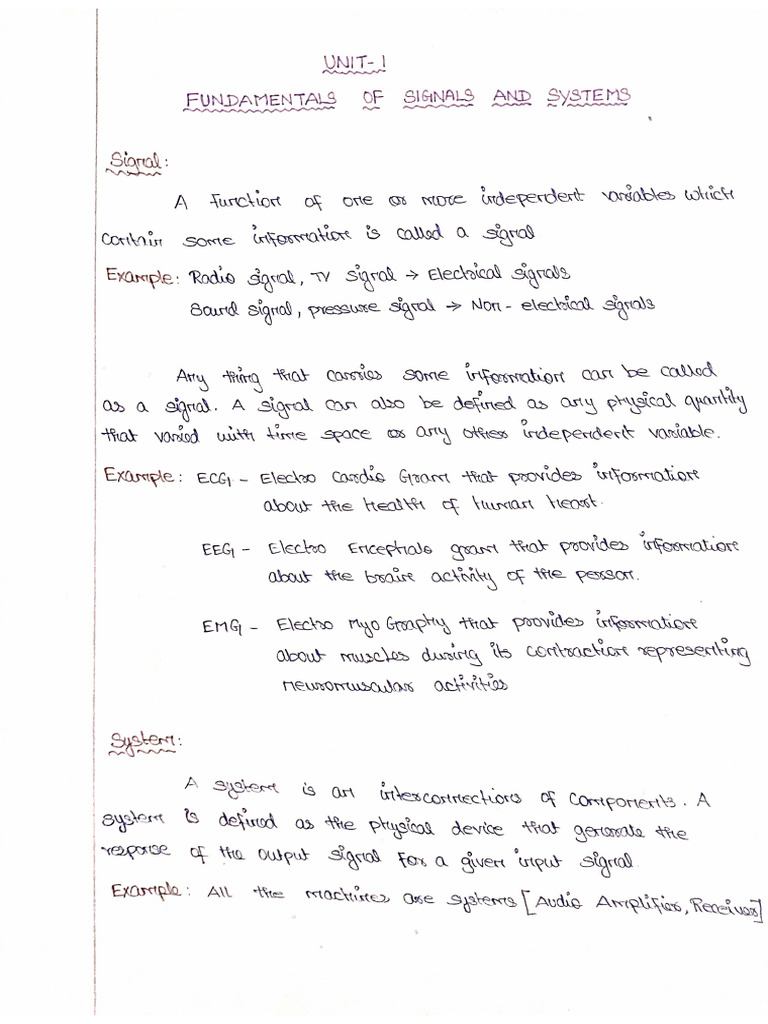 UNIT-1
FUNDAMENTALS OF SIGNALS AND SYSTEMS
Signal:
A function of one or more independent variables which
contain some information is called a signal
Example: Radio signal, TV signal → Electrical signals
Sound signal, pressure signal → Non-electrical signals
Any thing that carries some information can be called
as a signal. A signal can also be defined as any physical quantity
that varied with time space or any other independent variable.
Example: ECG - Electro Cardio Gram that provides information
about the health of human heart.
EEG - Electro Encephalo gram that provides information
about the brain activity of the person.
EMG - Electro Myo Graphy that provides information
about muscles during its contraction representing
neuromuscular activities
System:
A system is an interconnections of components. A
system is defined as the physical device that generate the
response of the output signal for a given input signal.
Example: All the machines are systems [Audio Amplifier, Receiver]